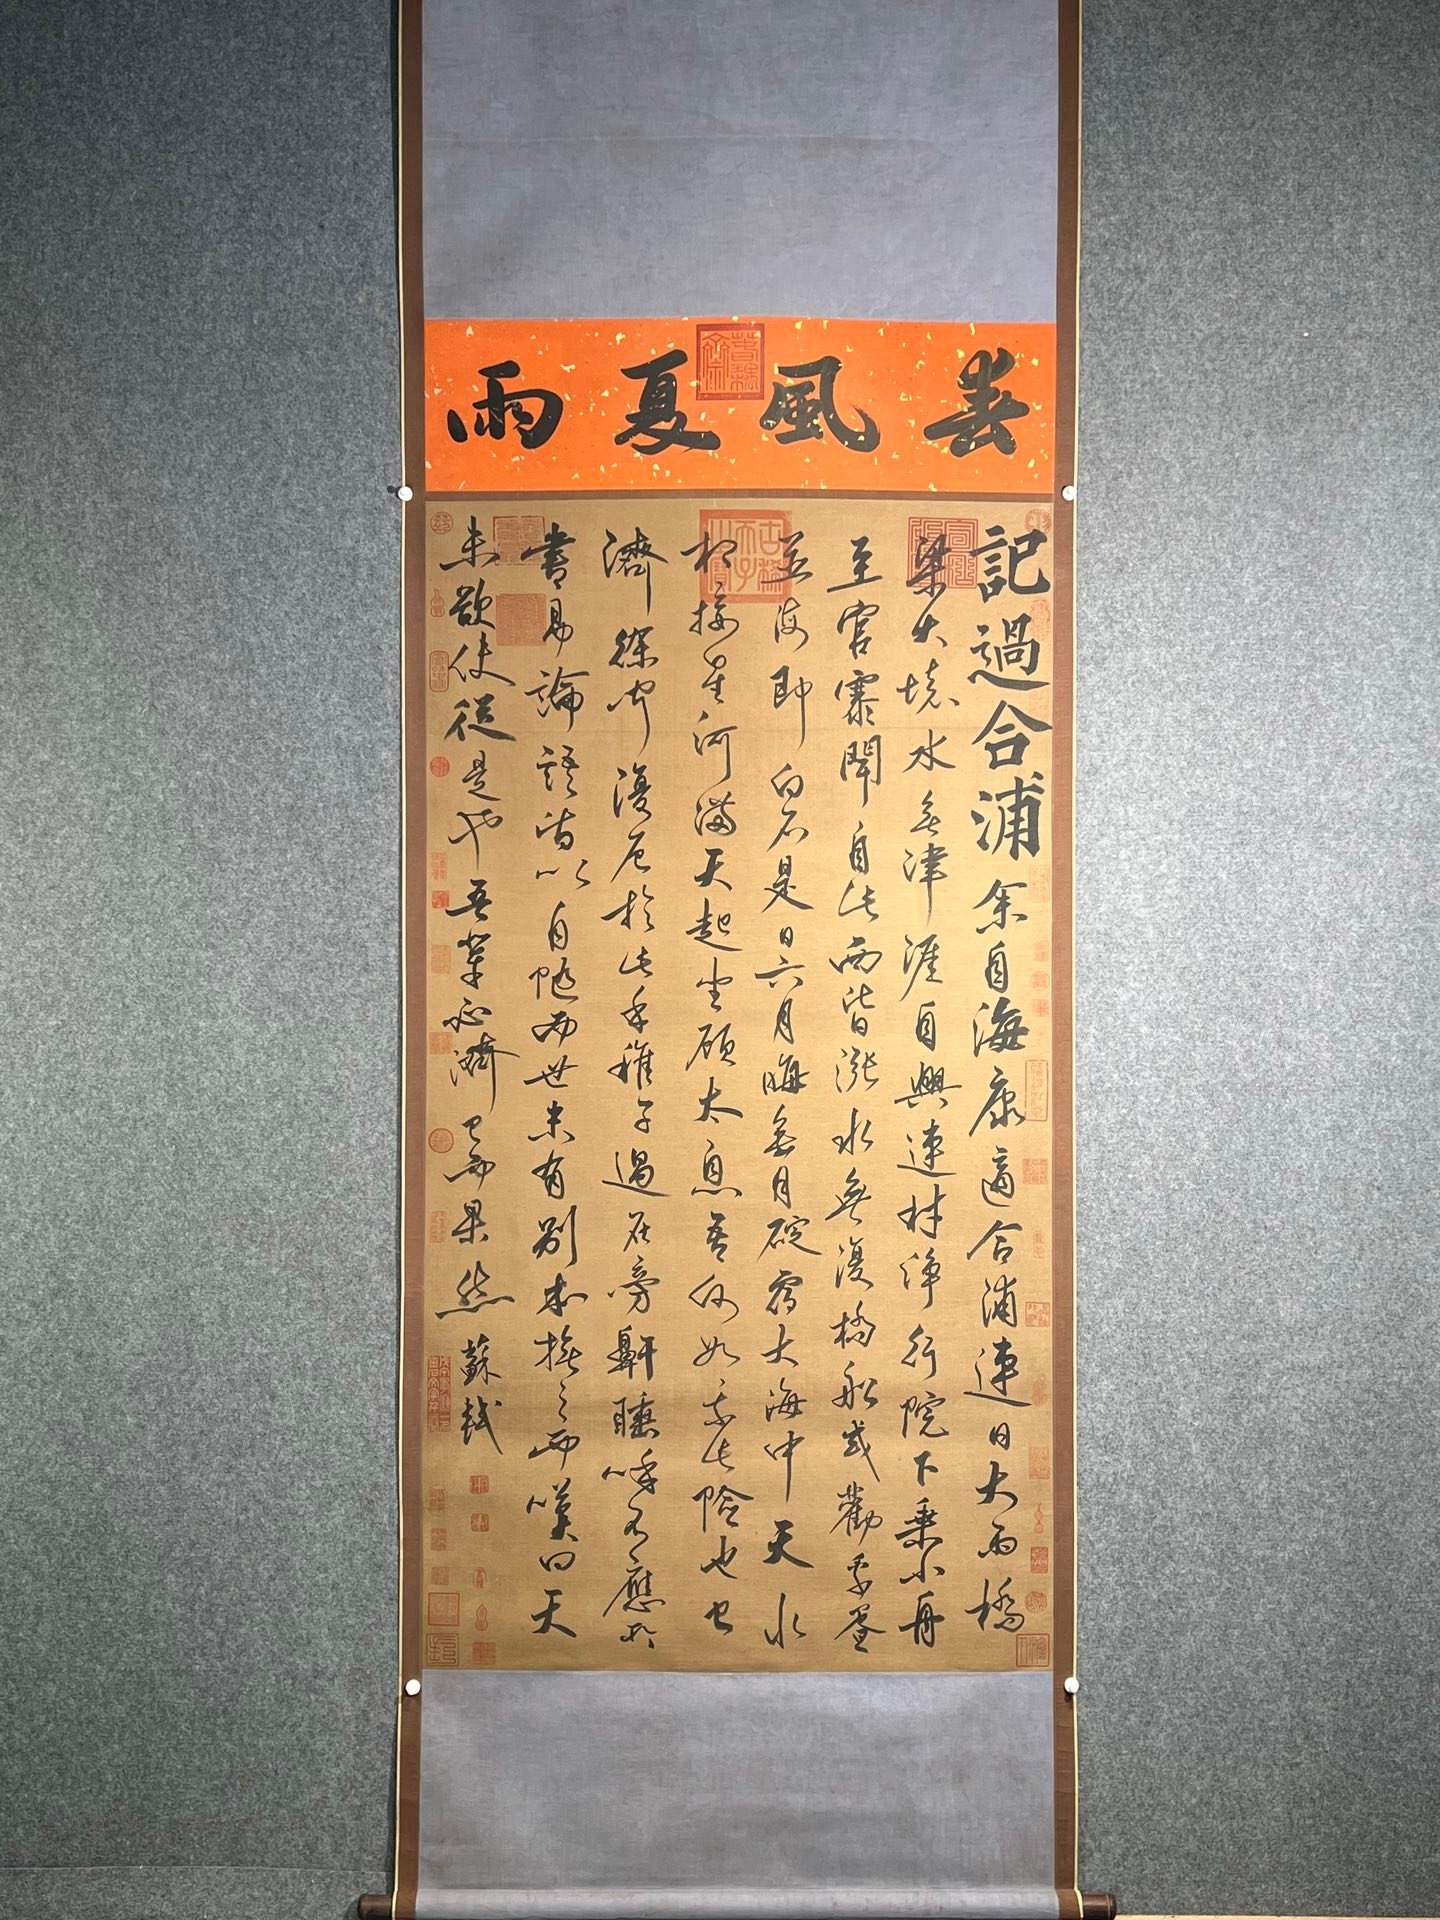 春風夏雨
記過合浦余自海康適合浦連日大雨橋
梁大壞水無津涯自興連村淨行院下乘小舟
至官寨聞自此西皆漲水無復橋船或勸乘蜑
並海即白石是日六月晦無月碇宿大海中天水
相接星河滿天起坐顧太息吾何如乘此險也已
濟徐聞復厄於此乎稚子過在旁鼾睡呼不應所
書易論語皆以自隨而世未有別本撫之而嘆曰天
未欲使從是也吾輩必濟已而果然蘇軾